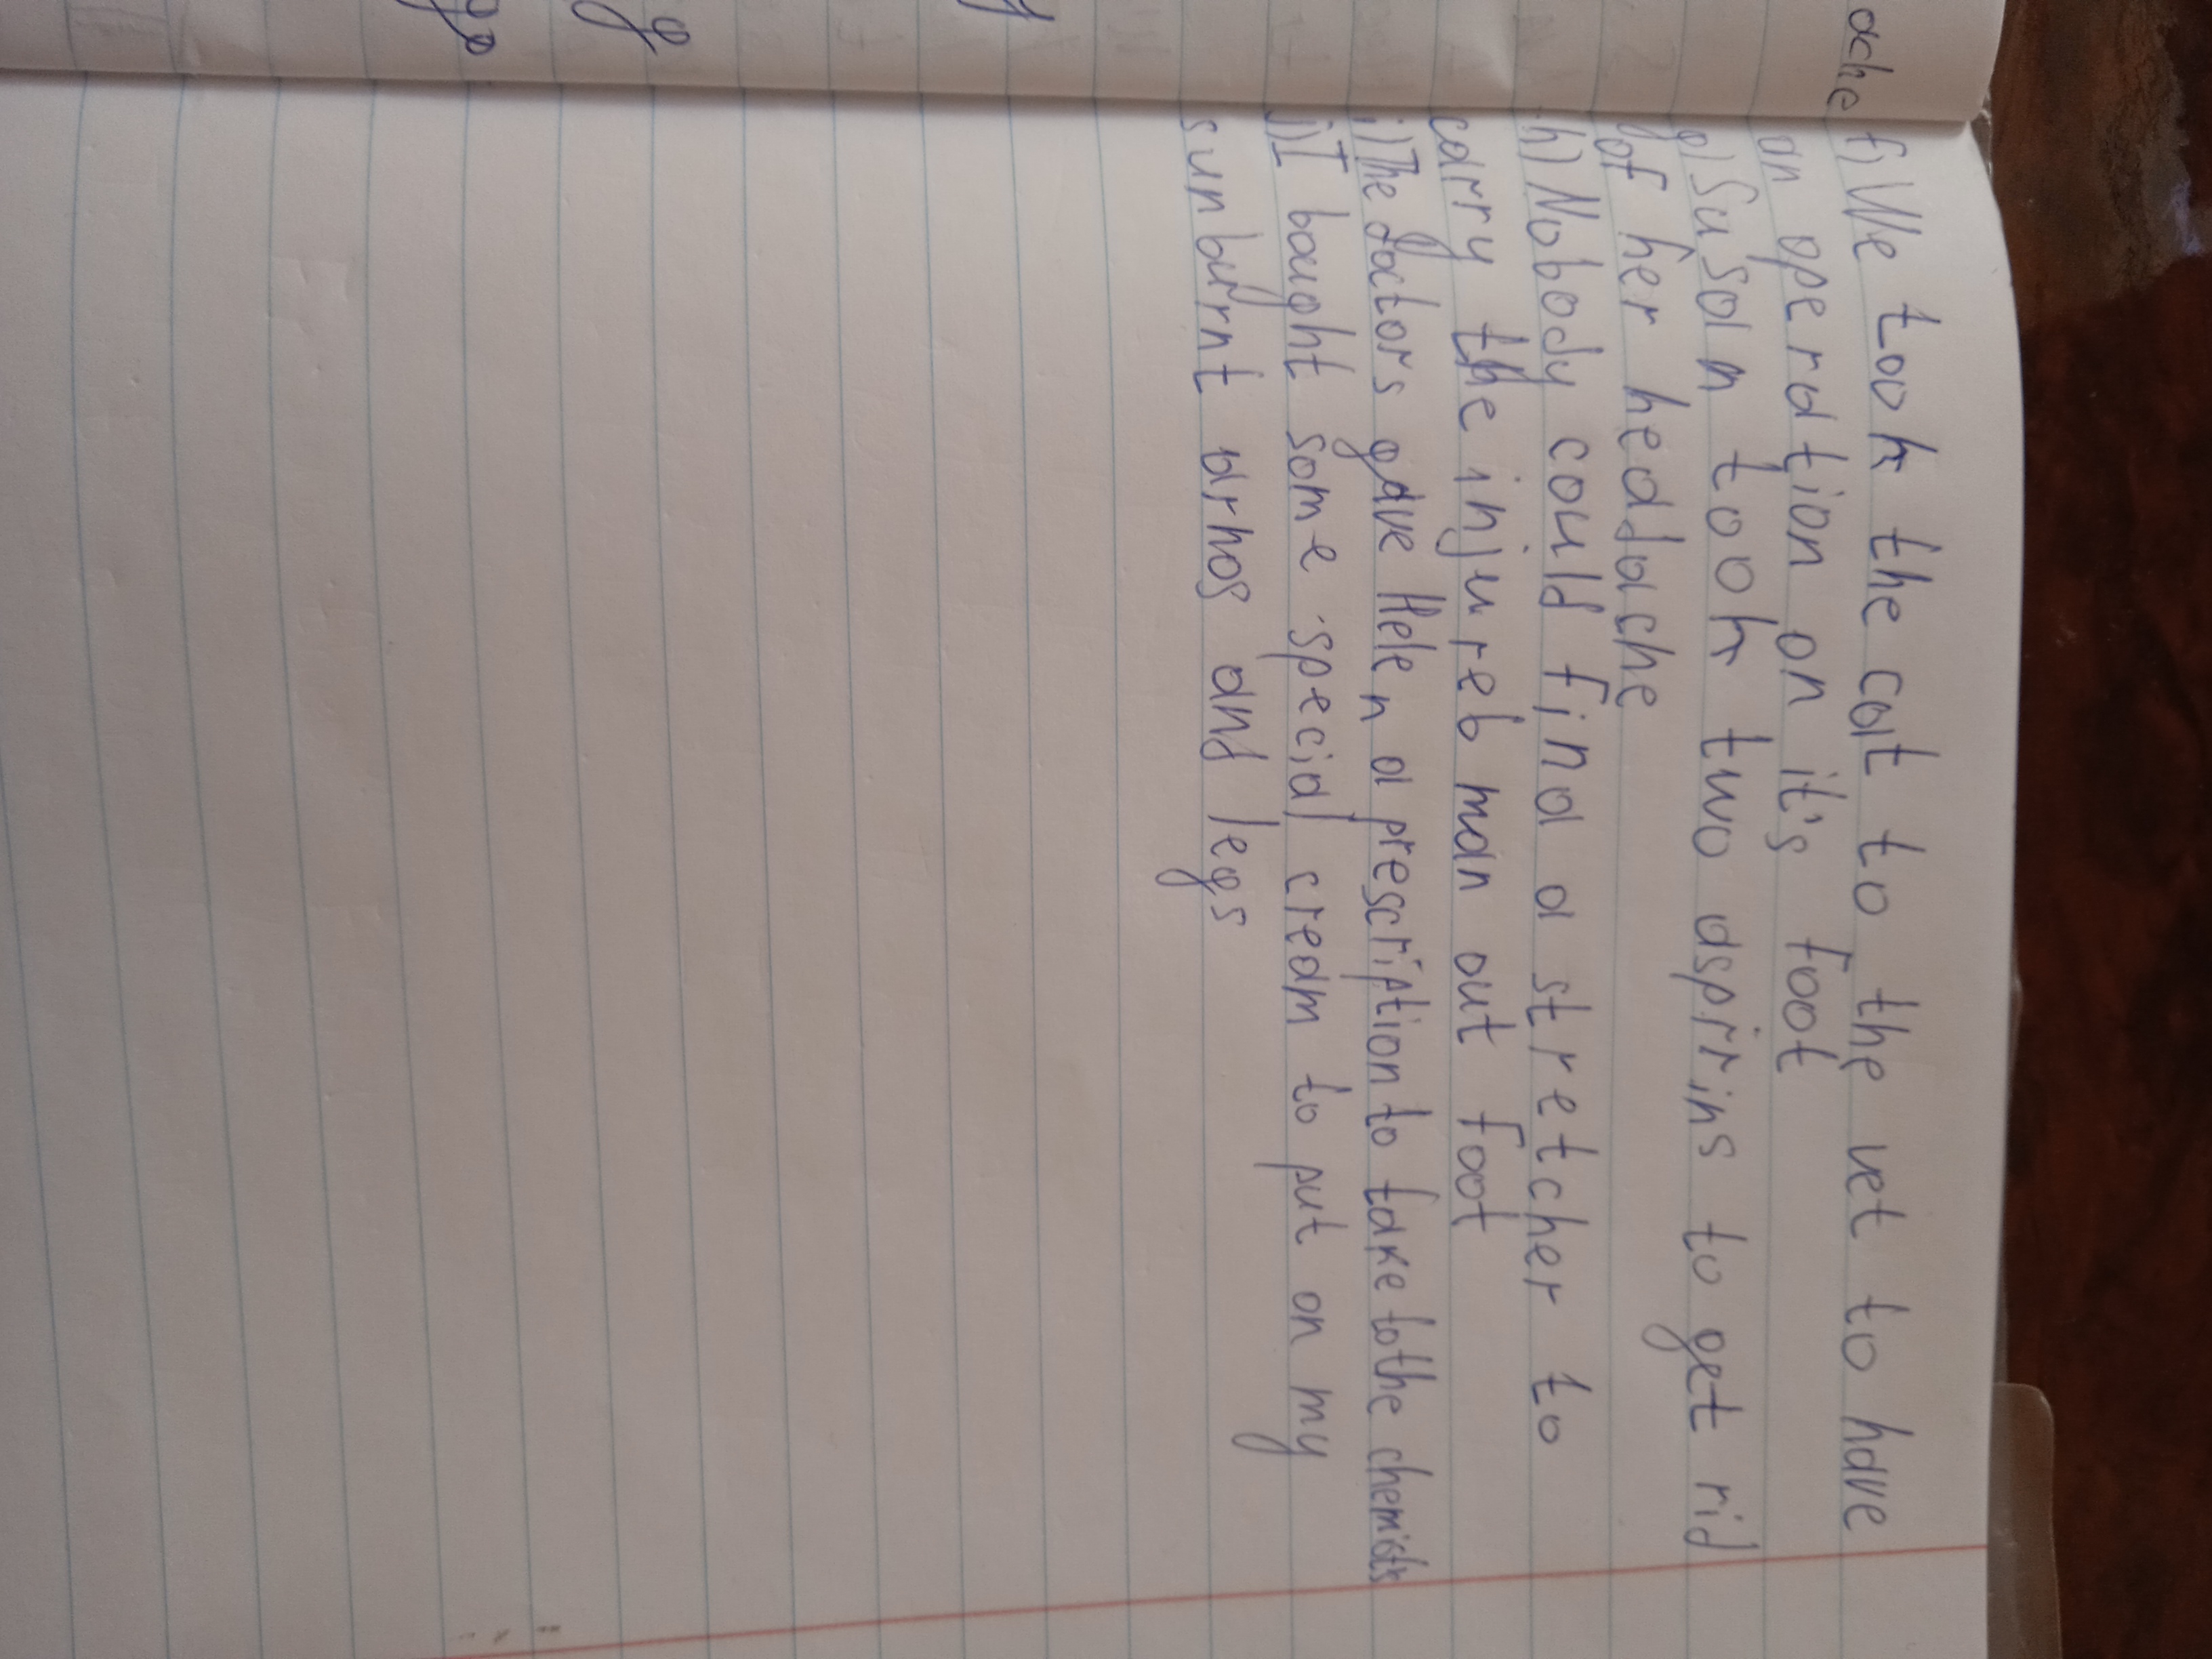 ache
f) We took the cat to the vet to have
an operation on it's foot
g) Susan took two asprins to get rid
of her headache
h) Nobody could find a stretcher to
carry the injureb man out foot
i) The doctors gave Helen a prescription to take to the chemists
j) I bought some special cream to put on my
sunburnt arms and legs